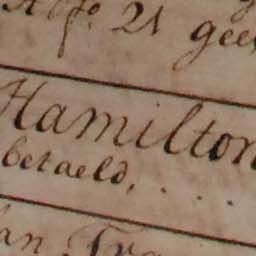 21 gee
Hamilton
betaeld, . . .
an Tra